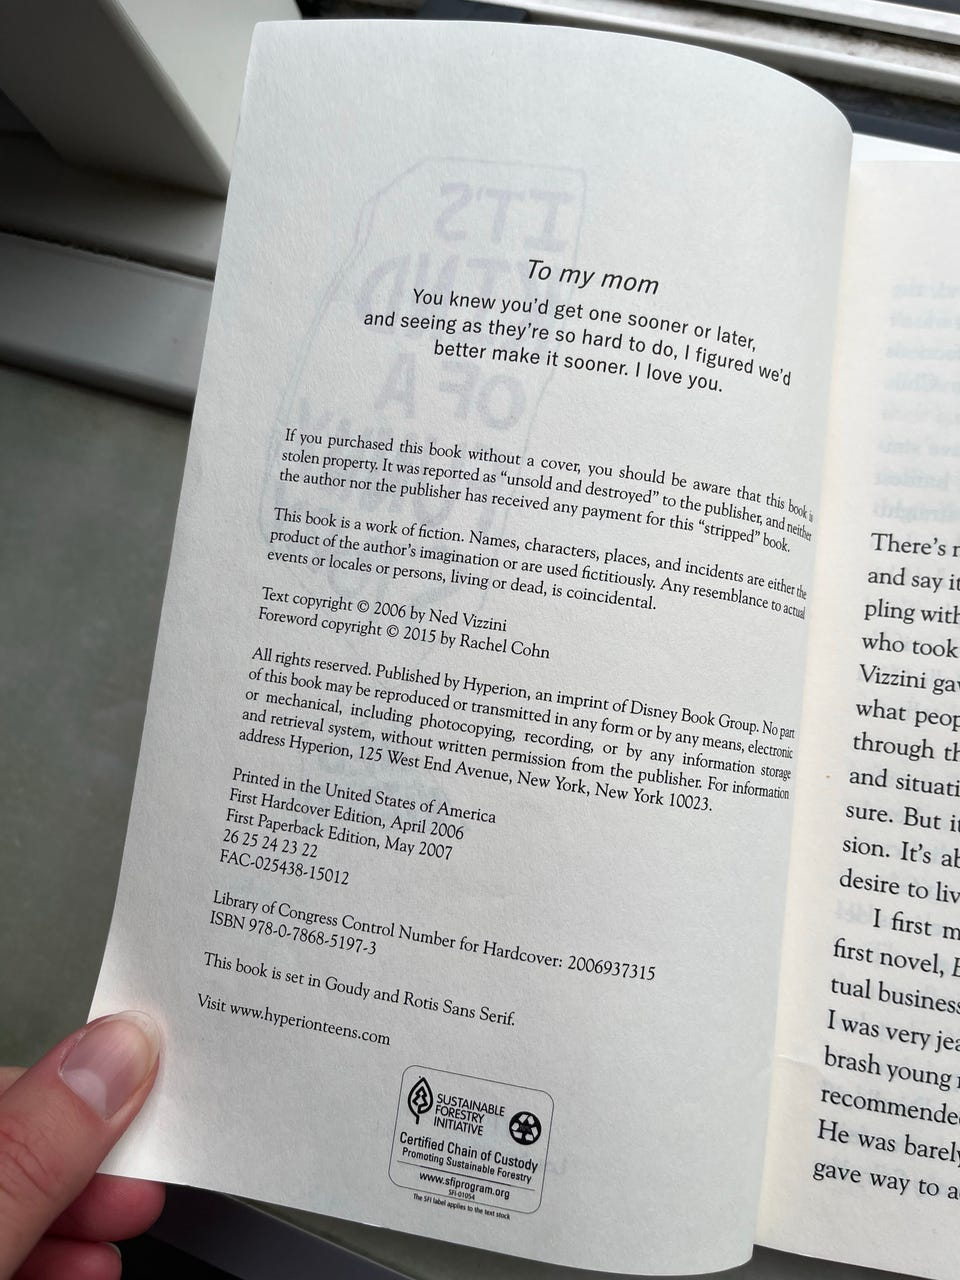 To my mom
You knew you'd get one sooner or later,
and seeing as they're so hard to do, I figured we'd
better make it sooner. I love you.
If you purchased this book without a cover, you should be aware that this book is
stolen property. It was reported as "unsold and destroyed" to the publisher, and neither
the author nor the publisher has received any payment for this "stripped" book.
This book is a work of fiction. Names, characters, places, and incidents are either the
product of the author's imagination or are used fictitiously. Any resemblance to actual
events or locales or persons, living or dead, is coincidental.
Text copyright © 2006 by Ned Vizzini
Foreword copyright © 2015 by Rachel Cohn
All rights reserved. Published by Hyperion, an imprint of Disney Book Group. No part
of this book may be reproduced or transmitted in any form or by any means, electronic
or mechanical, including photocopying, recording, or by any information storage
and retrieval system, without written permission from the publisher. For information
address Hyperion, 125 West End Avenue, New York, New York 10023.
Printed in the United States of America
First Hardcover Edition, April 2006
First Paperback Edition, May 2007
26 25 24 23 22
FAC-025438-15012
Library of Congress Control Number for Hardcover: 2006937315
ISBN 978-0-7868-5197-3
This book is set in Goudy and Rotis Sans Serif.
Visit www.hyperionteens.com
SUSTAINABLE
FORESTRY
INITIATIVE
Certified Chain of Custody
Promoting Sustainable Forestry
www.sfiprogram.org
SFI-01054
The SFI label applies to the text stock
There's
and say it
pling with
who took
Vizzini
what
through
and
sure. But
sion. It's
desire to
I first
first novel,
tual business
I was very
brash young
recommended
He was barely
gave way to